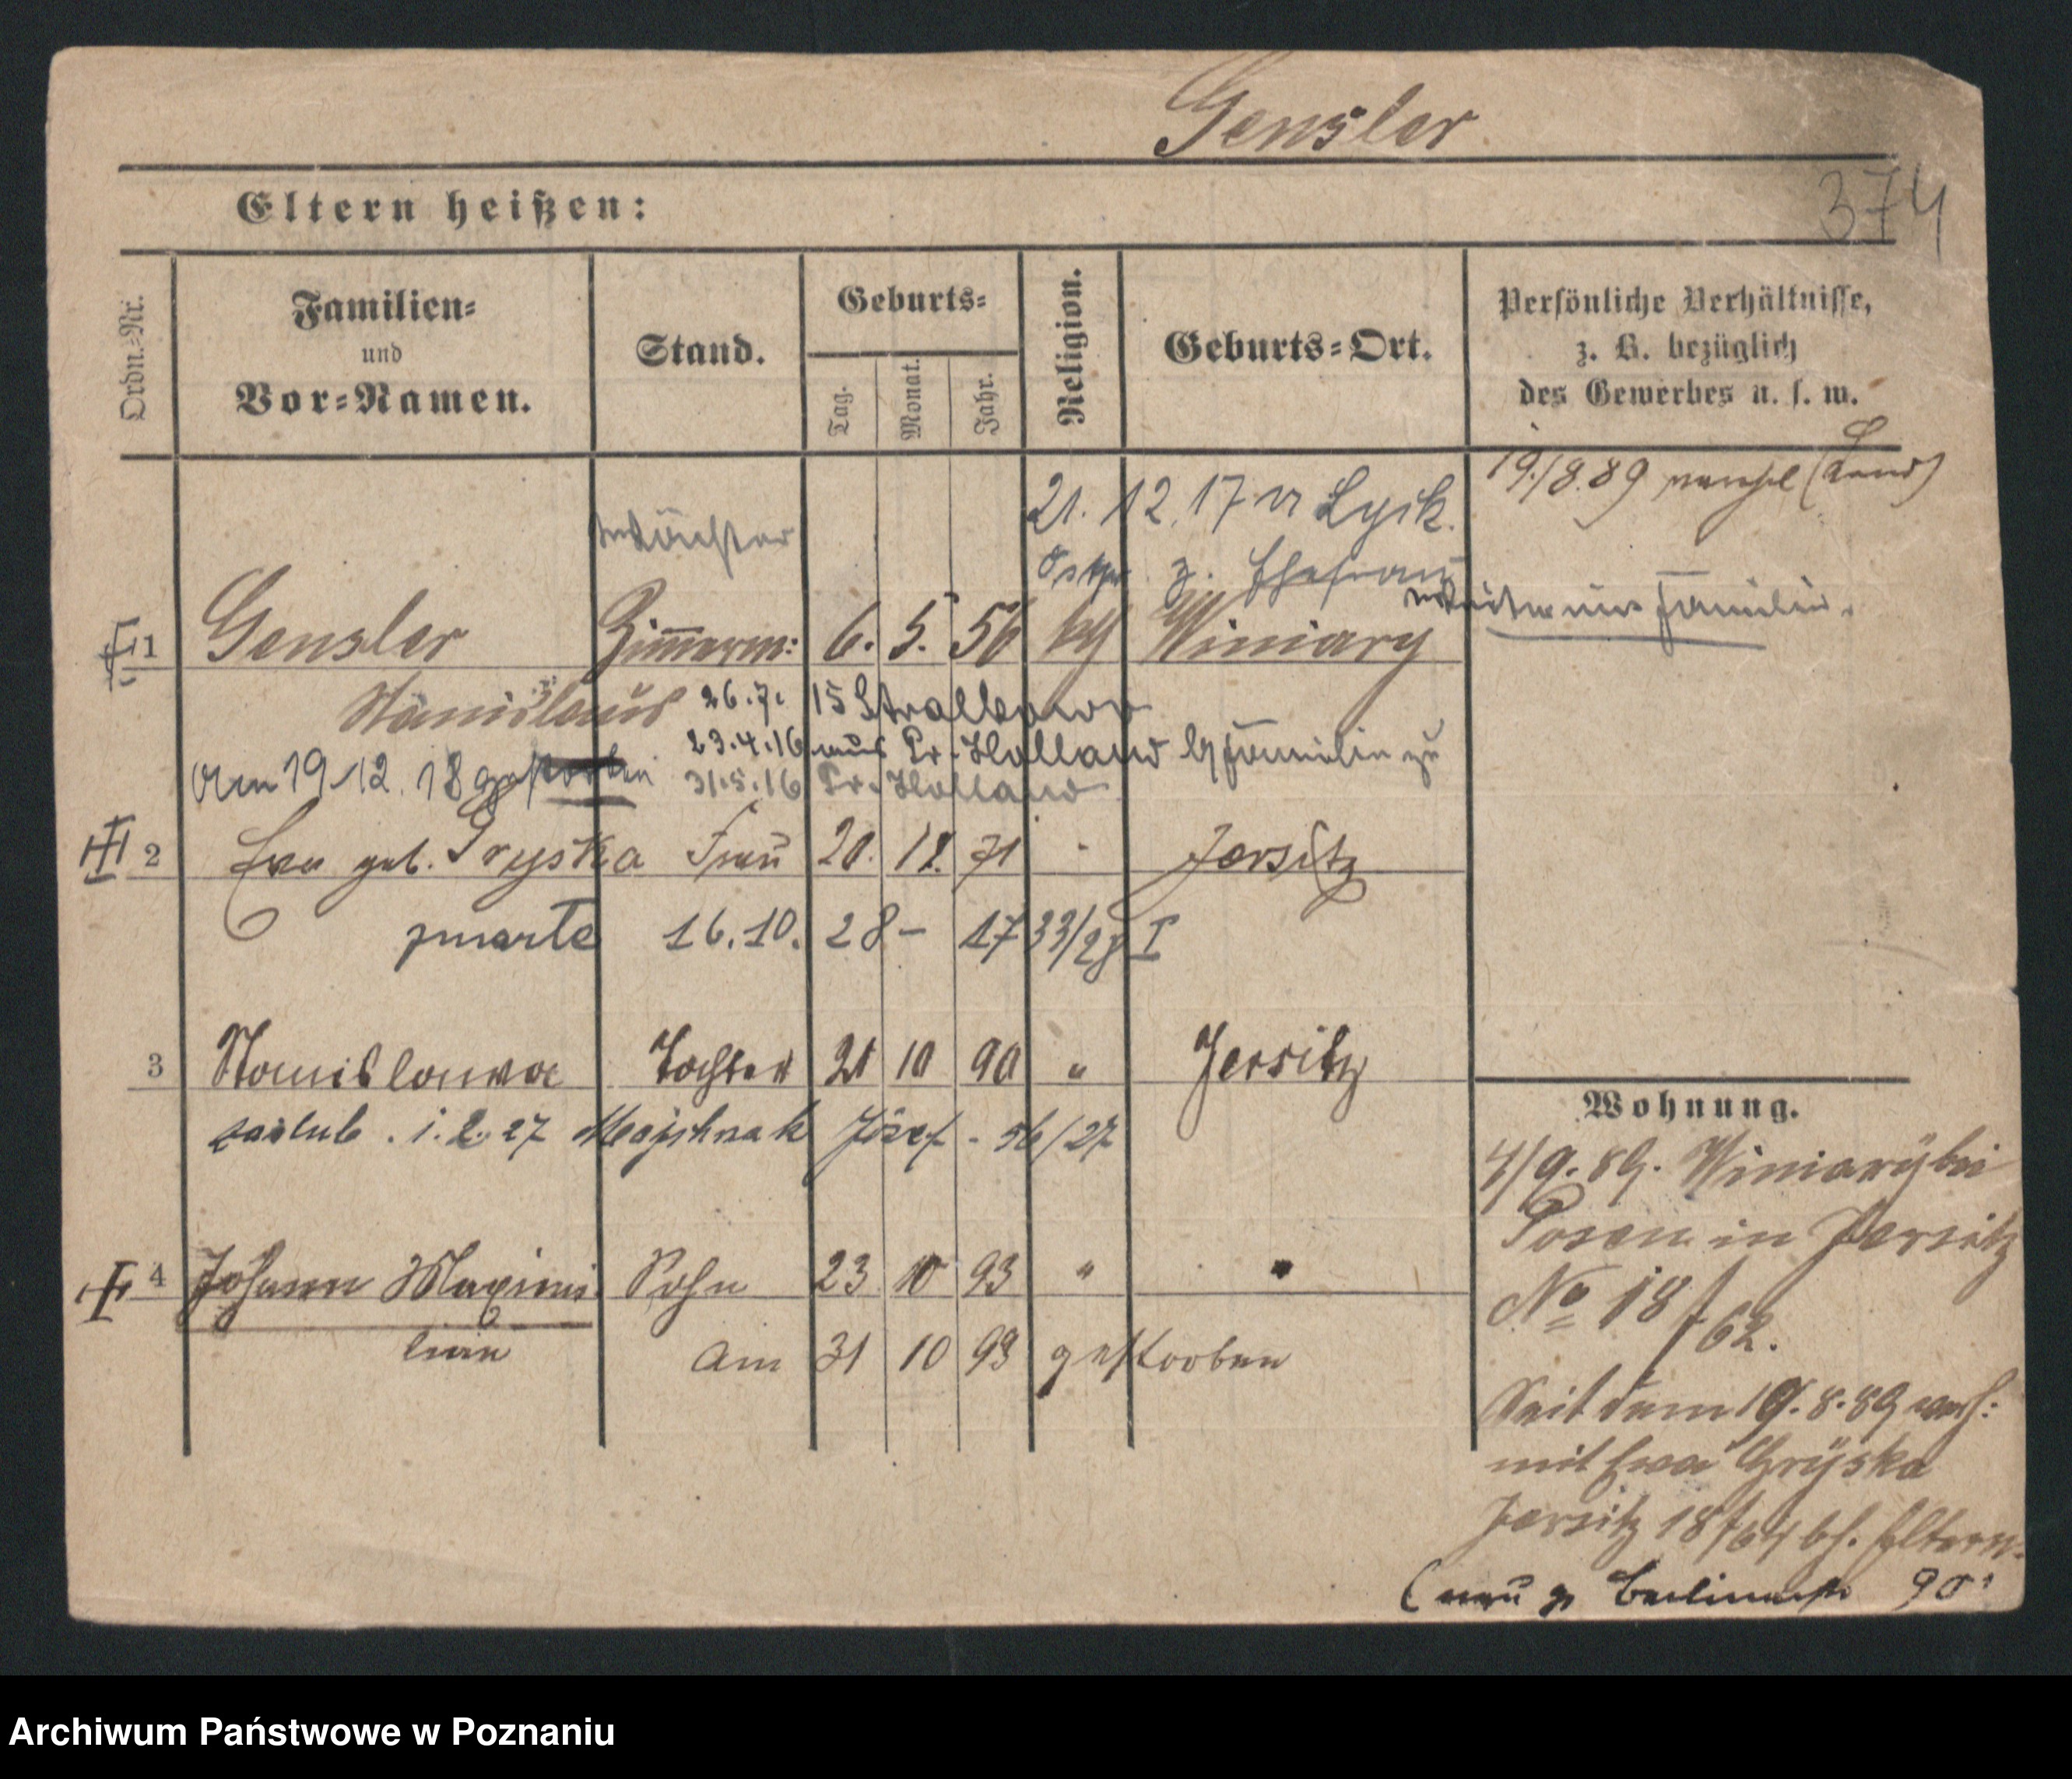 Gensler
374
Eltern heißen:
Ordn.-Nr.
Familien-
und
Vor-Namen.
Stand.
Geburts-
Tag.
Monat.
Jahr.
Religion.
Geburts-Ort.
Persönliche Verhältnisse,
z. B. bezüglich
des Gewerbes u. s. w.
19./8.89 (Land)
Wächter
21. 12. 17 v Lyck.
Ostpr z. Ehefrau
1 Gensler Zimmerm: 6. 5. 56 kth Winiary
Familie.
Stanislaus 26.7. 15 Stralkowo
23.4.16 aus Pr. Holland z Familie zu
Am 19.12.18 gestorben 31.5.16 Pr. Holland
2 Ewa geb. Gryska Frau 20. 12. 71 - Jersitz
zmarła 16.10. 28 - 1733/28 I
3 Stanislawa Tochter 21 10 90 " Jersitz
zaślub. 1.2.27 Majchrzak Józef - 56/27
4 Johann Maximi- Sohn 23 10 93 " "
lian am 31 10 93 gestorben
Wohnung.
4/9.89. Winiary bei
Posen in Jersitz
No 18/62.
Seit dem 19.8.89 verh:
mit Ewa Gryska
Jersitz 18/64 bh. Eltern.
Berlinerstr 90
Archiwum Państwowe w Poznaniu